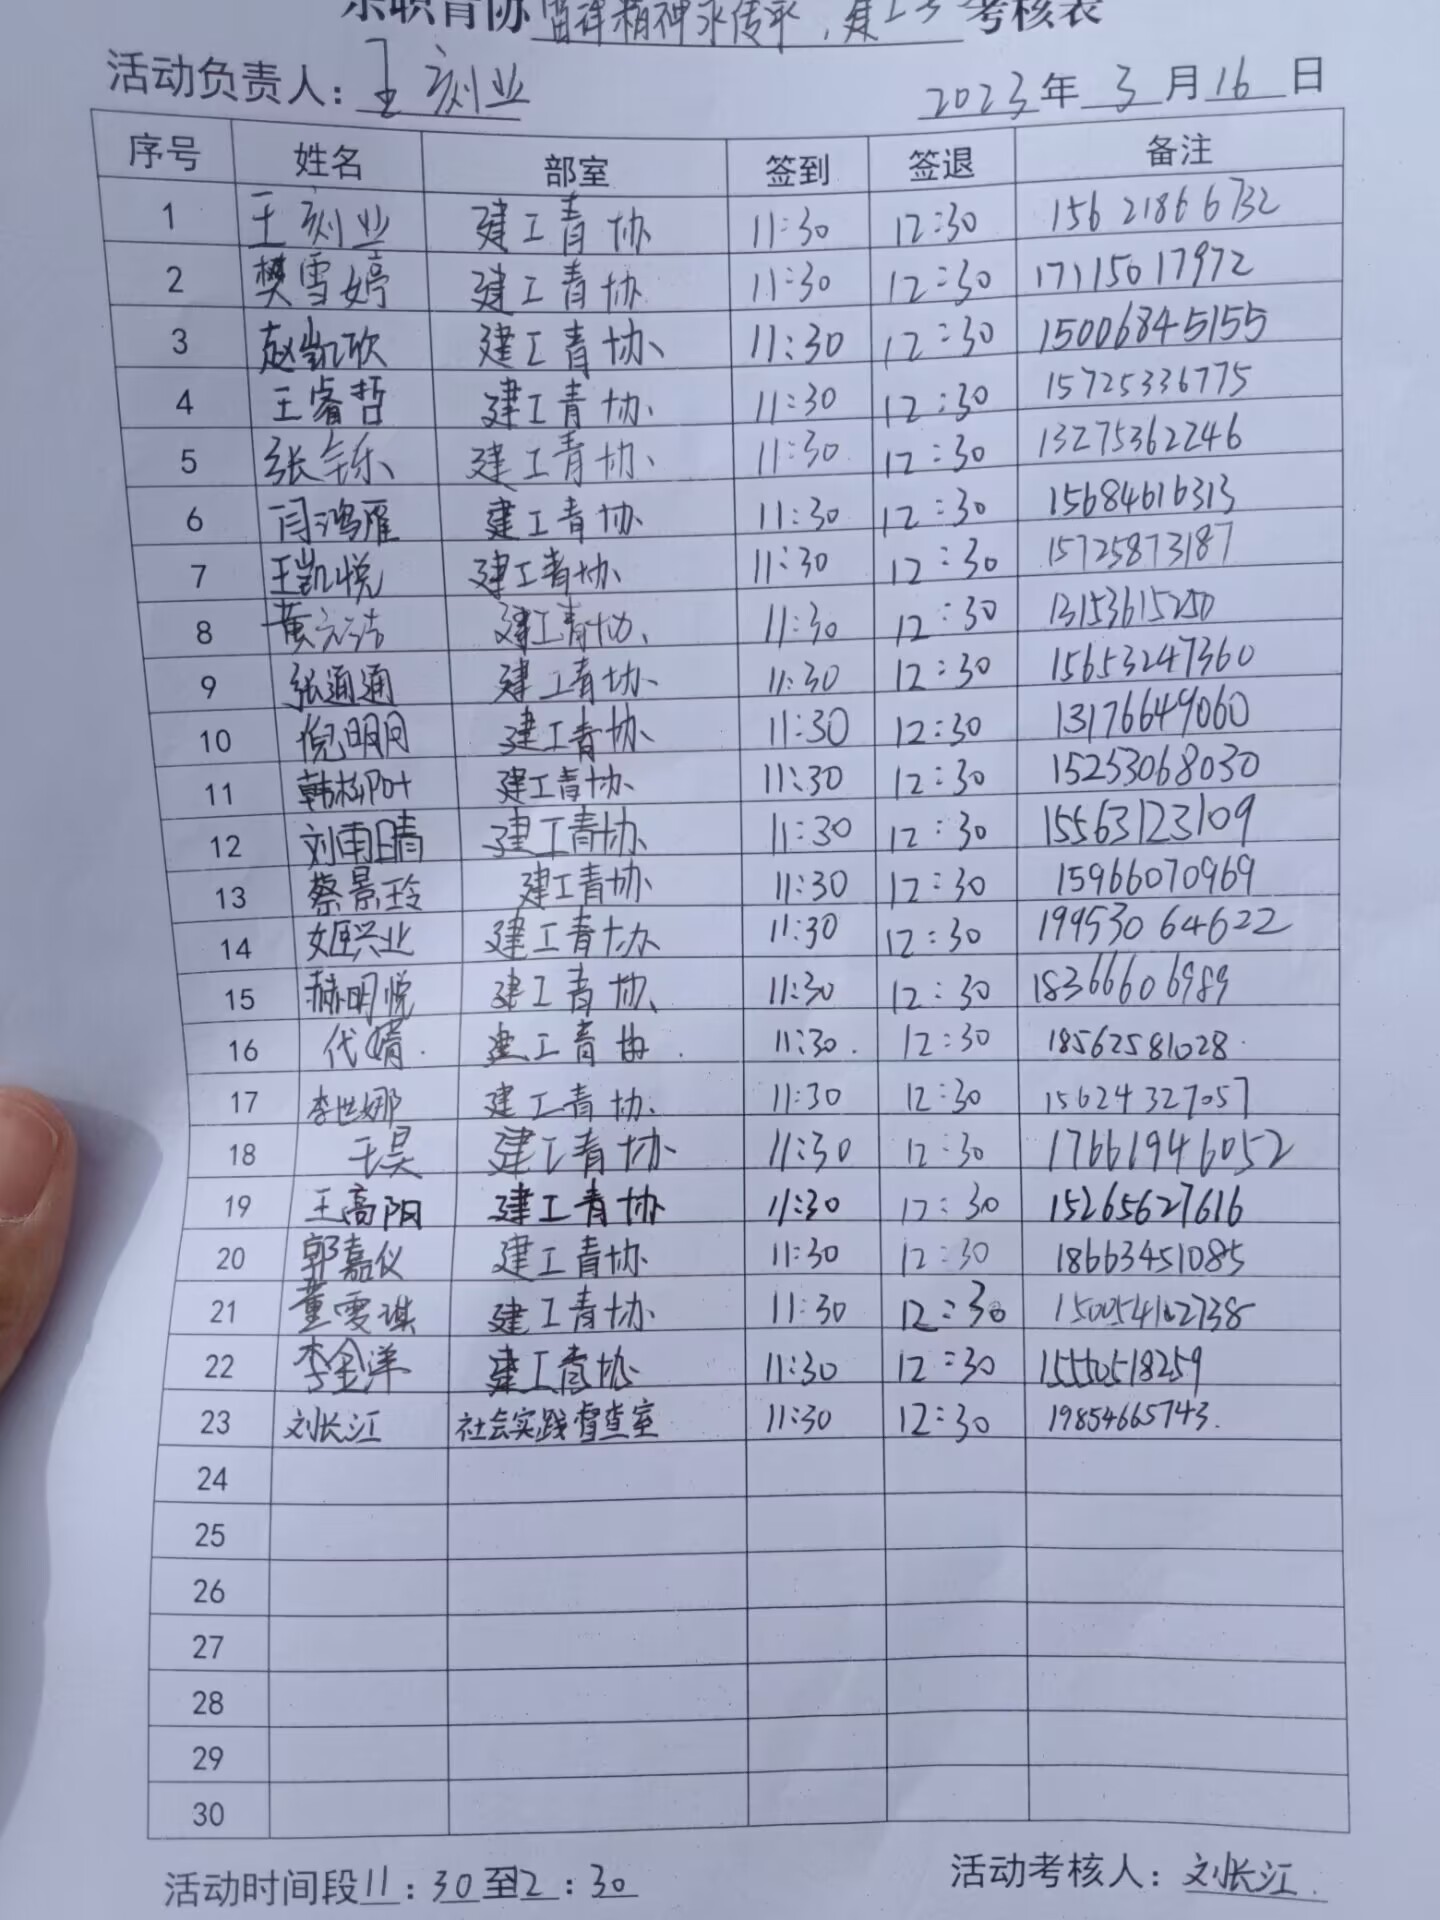 青协雷锋精神永传承，建工 考核表
活动负责人：王刻业 2023年3月16日
序号 姓名 部室 签到 签退 备注
1 王刻业 建工青协 11:30 12:30 15621866732
2 樊雪婷 建工青协 11:30 12:30 17115017972
3 赵凯欣 建工青协 11:30 12:30 15006845155
4 王睿哲 建工青协 11:30 12:30 15725336775
5 张 建工青协 11:30 12:30 13275362246
6 闫鸿雁 建工青协 11:30 12:30 15684616313
7 王凯悦 建工青协 11:30 12:30 15725873187
8 黄 建工青协 11:30 12:30 13153615250
9 张通通 建工青协 11:30 12:30 15653247360
10 倪明月 建工青协 11:30 12:30 13176649060
11 韩 建工青协 11:30 12:30 15253068030
12 刘雨晴 建工青协 11:30 12:30 15563123109
13 蔡景玲 建工青协 11:30 12:30 15966070969
14 姬兴业 建工青协 11:30 12:30 19953064622
15 赫明悦 建工青协 11:30 12:30 18366606989
16 代婧 建工青协 11:30 12:30 18562581028
17 李世娜 建工青协 11:30 12:30 15624327057
18 王昊 建工青协 11:30 12:30 17661946052
19 王高阳 建工青协 11:30 12:30 15265627616
20 郭嘉仪 建工青协 11:30 12:30 18663451085
21 董雯琪 建工青协 11:30 12:30
22 李金洋 建工青协 11:30 12:30 15550518259
23 刘长江 社会实践督查室 11:30 12:30 19854665743
24
25
26
27
28
29
30
活动时间段11：30至12：30 活动考核人：刘长江